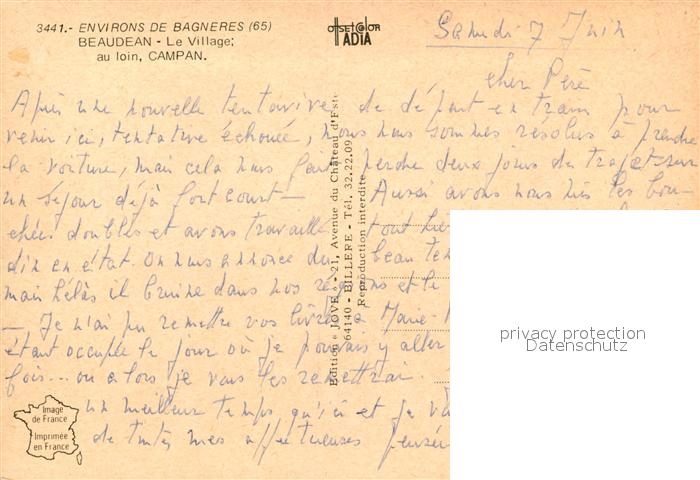 3441.- ENVIRONS DE BAGNERES (65)
BEAUDEAN - Le Village;
au loin, CAMPAN.
OffsetColor
ADIA
Samedi 7 Juin
Cher Père
Après une nouvelle tentative de départ en train pour
venir ici, tentative échouée, nous nous sommes résolus à prendre
la voiture, mais cela nous fait perdre deux jours de trajet sur
un séjour déjà fort court -
Aussi avons nous mis les bou-
chées doubles et avons travaillé tout hier
din en état On nous annonce du beau ten
mais hélas il bruine dans nos régions et le
- Je n'ai pu remettre vos livres à Marie-
étant occupée le jour où je pouvais y aller
fois... ou alors je vous les remettrai.
un meilleur temps qu'ici et je
de toutes mes affectueuses pensée
Edition « JOVE » - 21, Avenue du Château d'Este
64140 - BILLERE - Tél. 32.22.09
Reproduction interdite
Image
de France
Imprimée
en France
privacy protection
Datenschutz